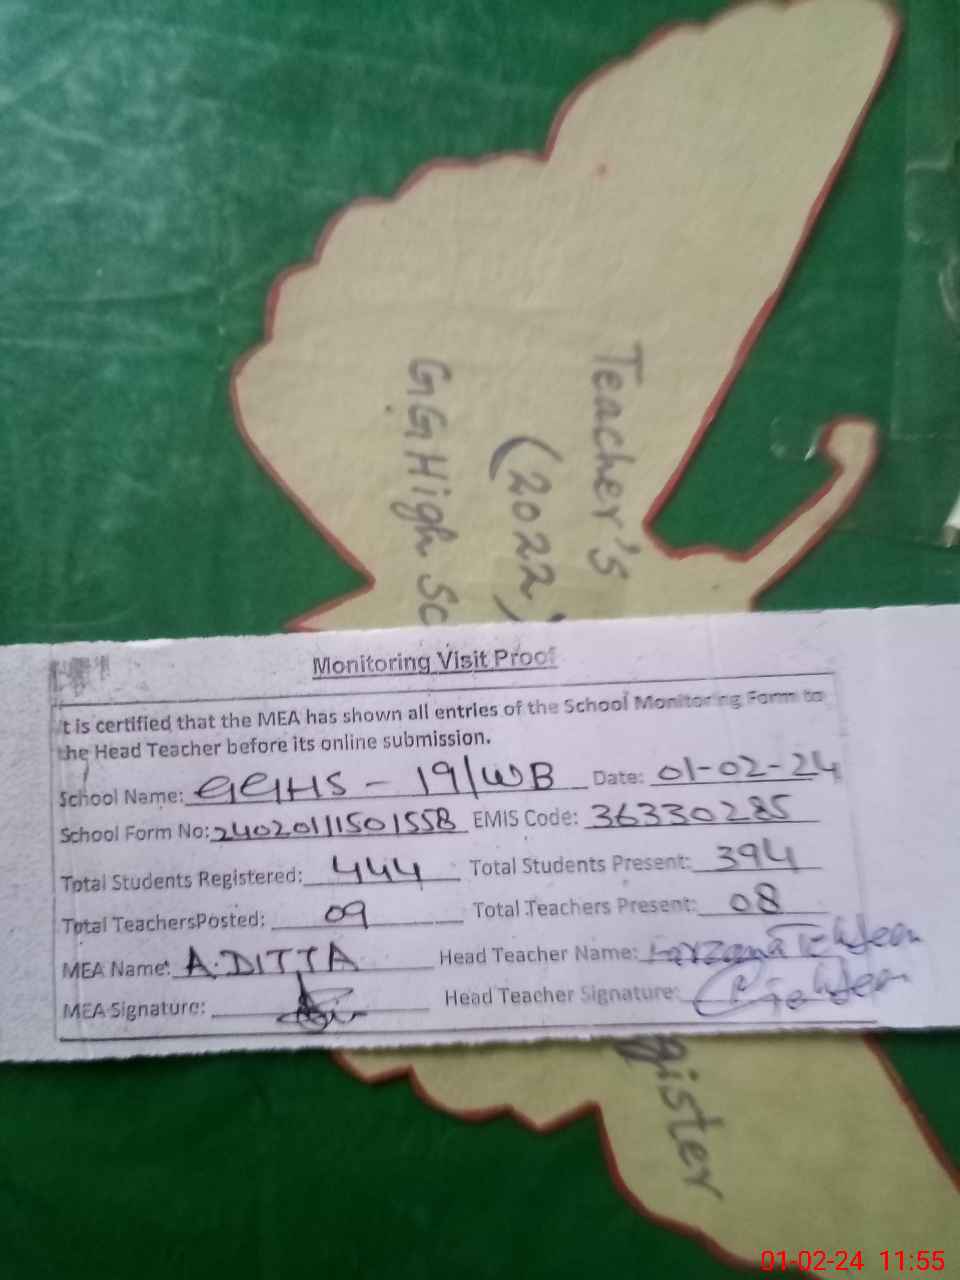 Teacher's
(2022,
GG High Sc
gister
Monitoring Visit Proof
It is certified that the MEA has shown all entries of the School Monitoring Form to
the Head Teacher before its online submission.
School Name: GGHS - 19/WB Date: 01-02-24
School Form No: 24020111501558 EMIS Code: 36330285
Total Students Registered: 444 Total Students Present: 394
Total TeachersPosted: 09 Total Teachers Present: 08
MEA Name: A.DITTA Head Teacher Name: Farzana
MEA Signature: Head Teacher Signature:
01-02-24 11:55